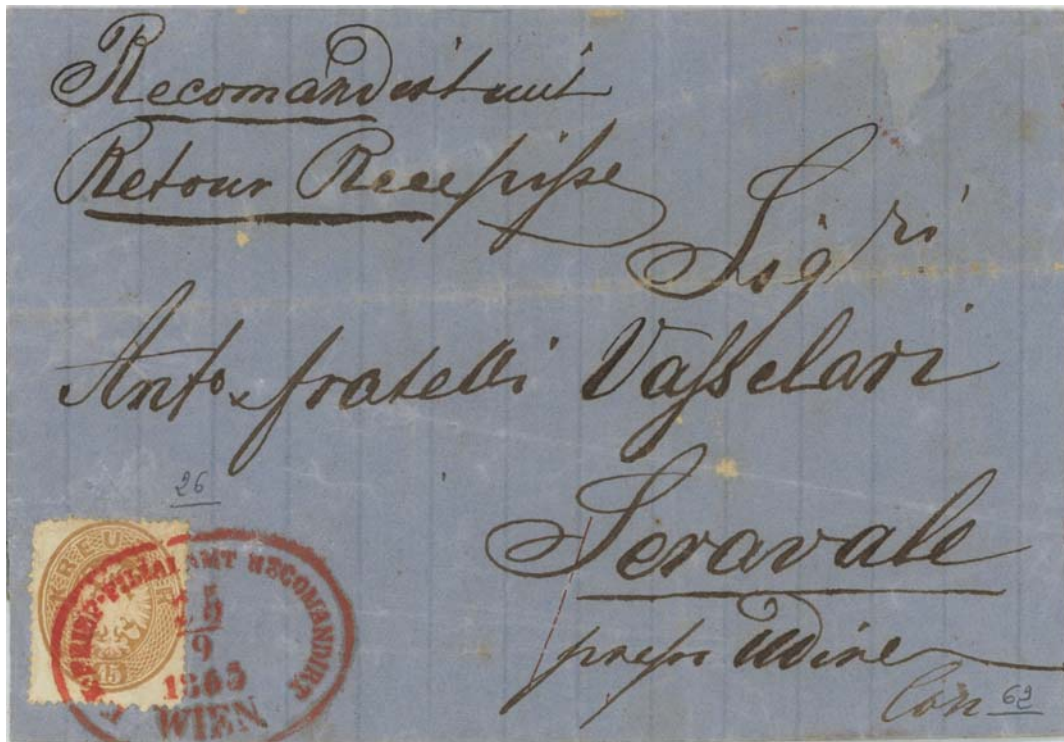 Recomandirt mit
Retour Recepisse
Sigri
Anto. fratelli Vasselari
Seravale
presso Udine
26
KREUZER
15
BRIEF-FILIALAMT RECOMANDIRT
9
WIEN
62